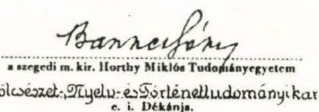 a szegedi m. kir. Horthy Miklós Tudományegyetem
ölcsészet-, Nyelv- és Történettudományi kar
e. i. Dékánja.